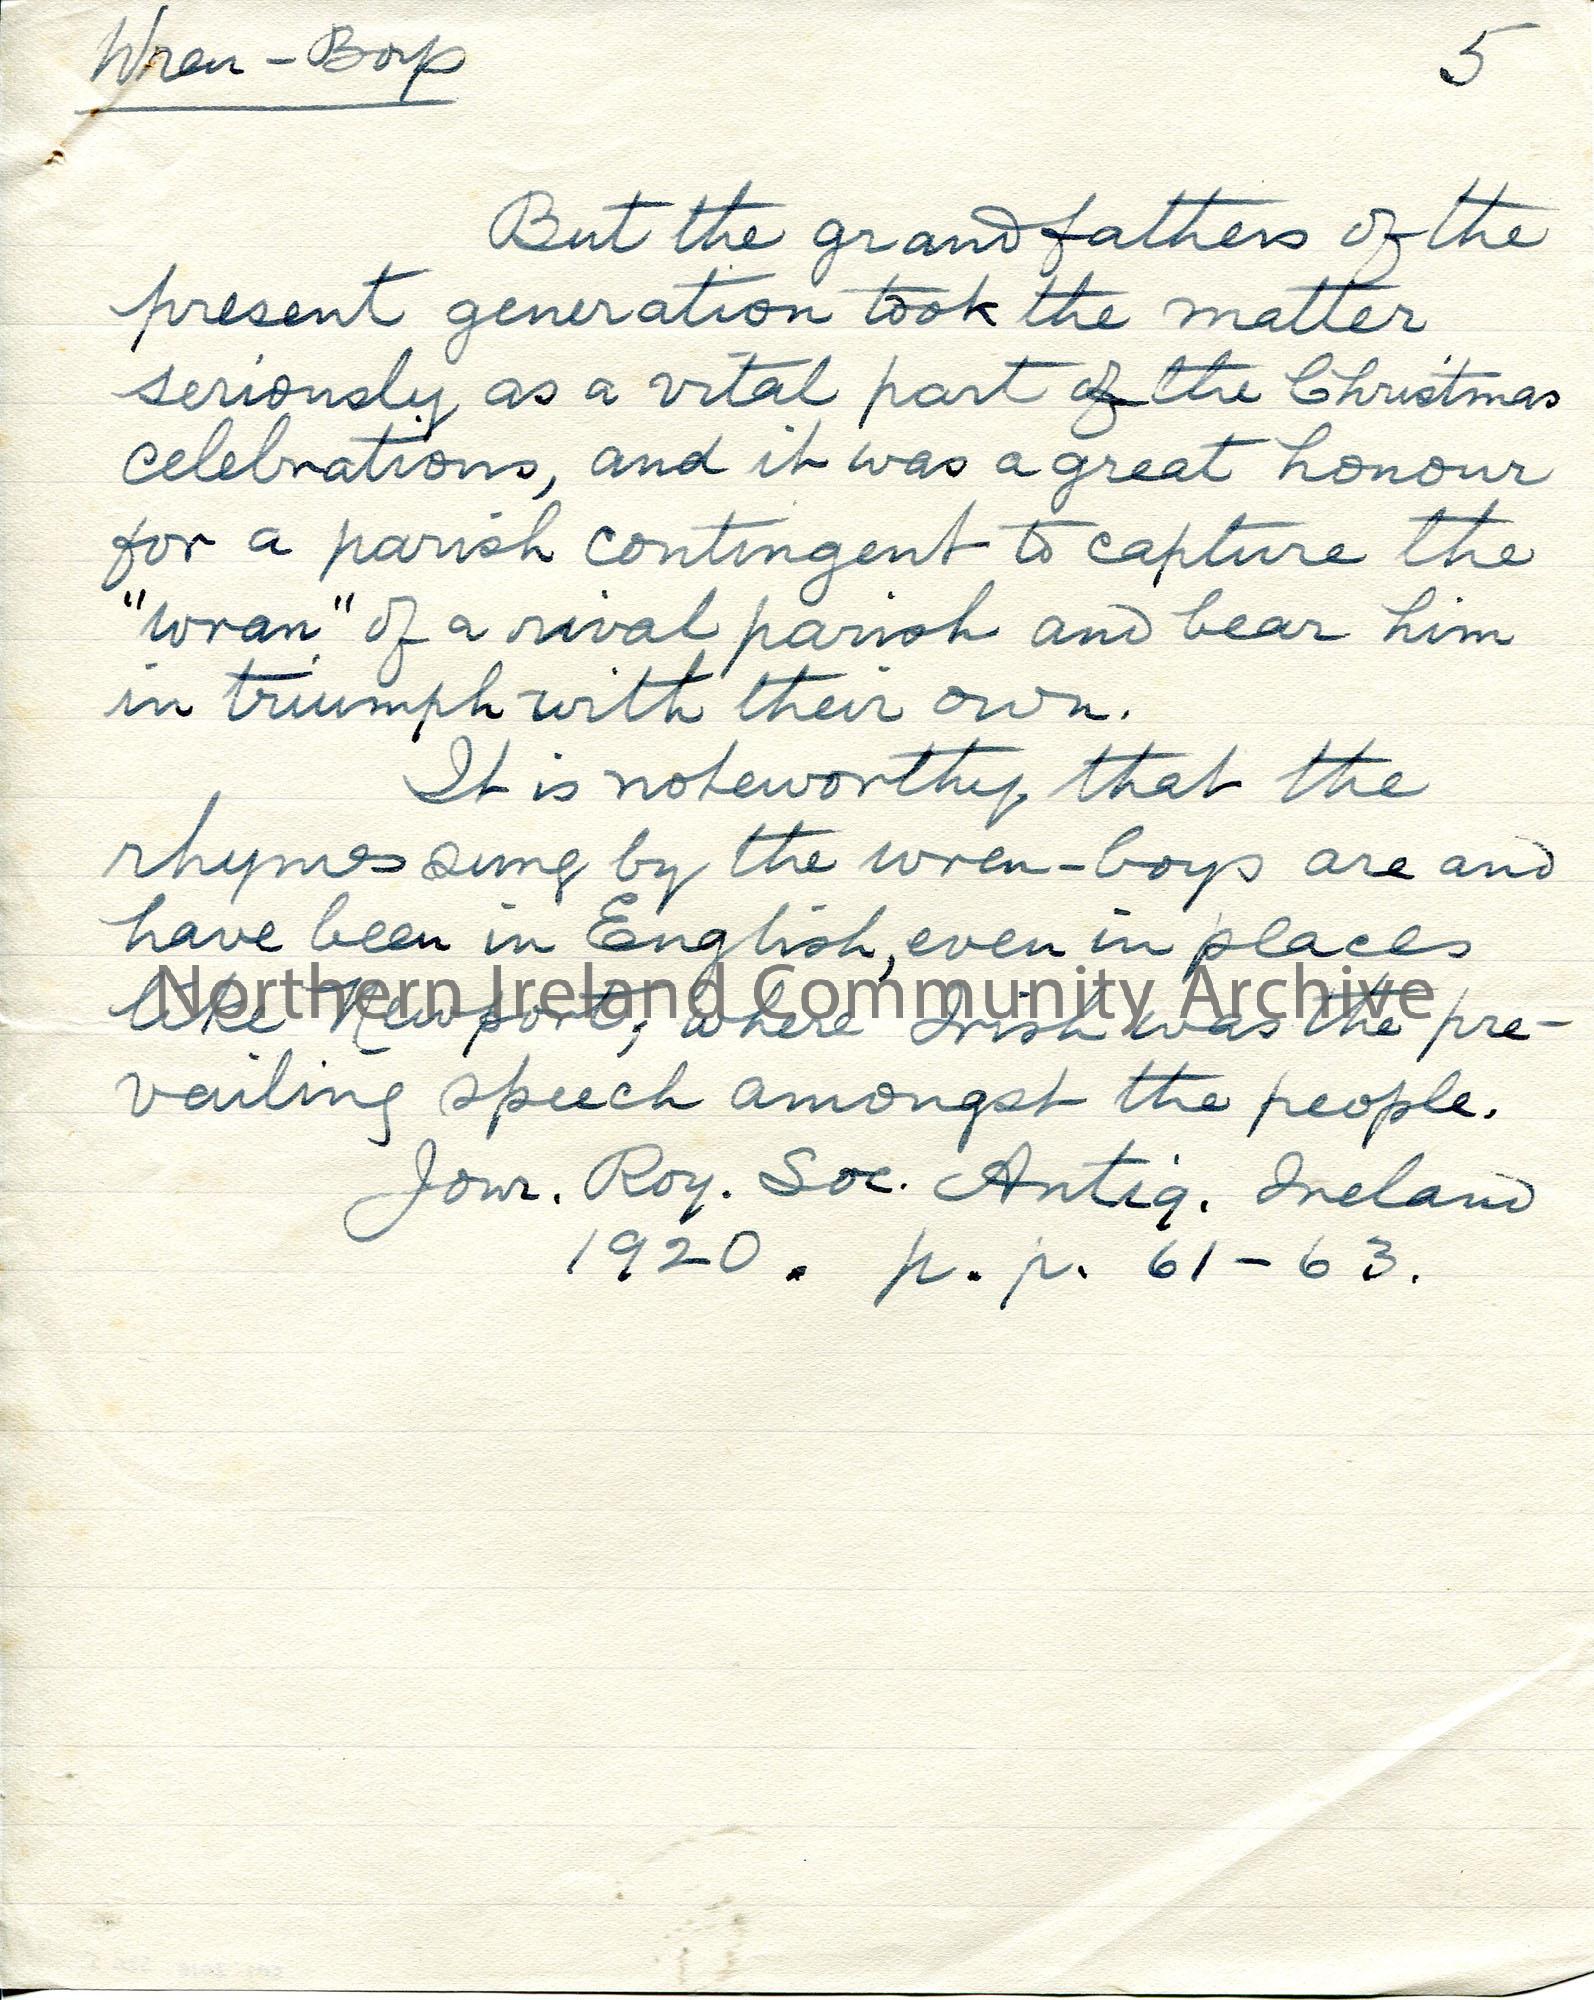 Wren-Boys
5
But the grandfathers of the
present generation took the matter
seriously as a vital part of the Christmas
celebrations, and it was a great honour
for a parish contingent to capture the
"wran" of a rival parish and bear him
in triumph with their own.
It is noteworthy, that the
rhymes sung by the wren-boys are and
have been in English, even in places
like Newport, where Irish was the pre-
vailing speech amongst the people.
Jour. Roy. Soc. Antiq. Ireland
1920. p. p. 61-63.
Northern Ireland Community Archive